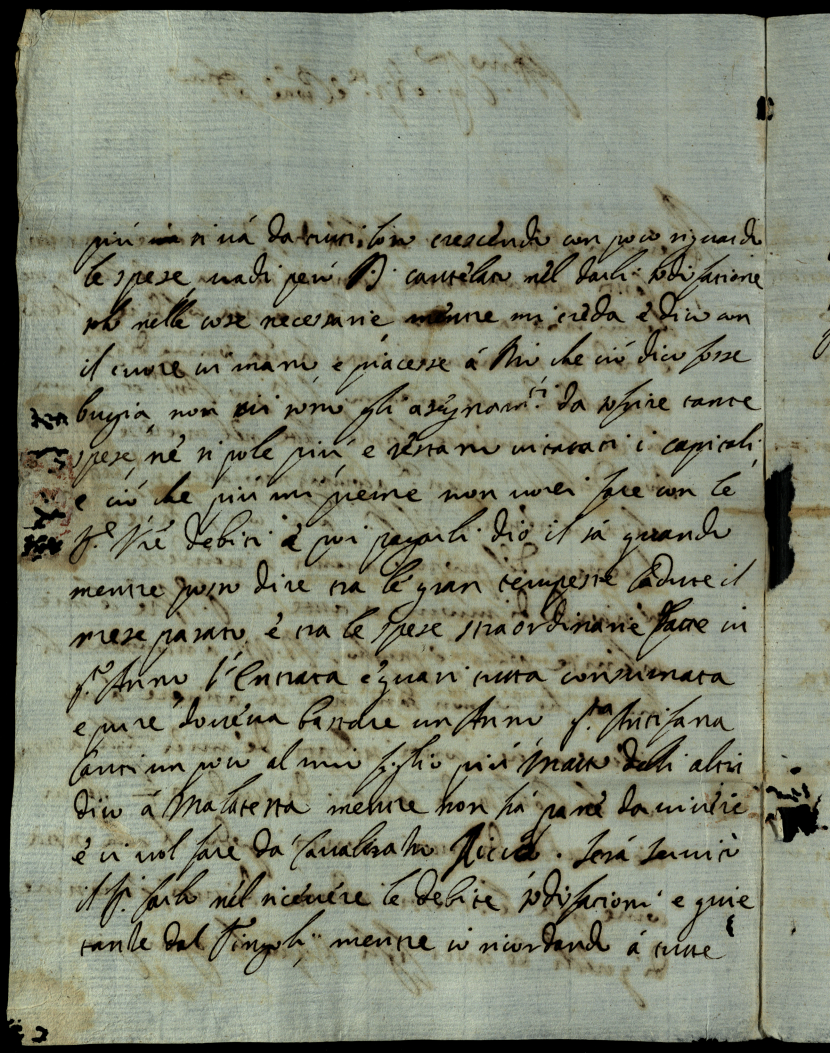 più si và da tutti loro crescendo con poco riguardo
le spese, vadi però cautelato nel darli sodisfatione
solo nelle cose necessarie mentre mi creda è dico con
il cuore in mano e piacesse à Dio che ciò dico fosse
bugia, non vi sono gli asegnam.ti da soplire tante
spese, nè si pole più e restano intacati i capitali
e ciò che più mi preme non vorei fare con le
debiti è poi pagarli dio il sà quando
mentre posso dire tra le gran tempeste cadute il
mese pasato, è tra le spese straordinarie fatte in
q.to Anno l'Entrata è quasi tutta consumata
e pure doveva bastare un Anno q.ta Antifana
canti un poco al mio figlio più Matto delli altri
dico à Malatesta mentre non hà pane da vivere
è vi vol fare da Cavaliero Ricco. serà servito
il S. Carlo nel ricevere le debite sodisfationi e quie
tanze dal Pingoli, mentre io ricordando à tutte